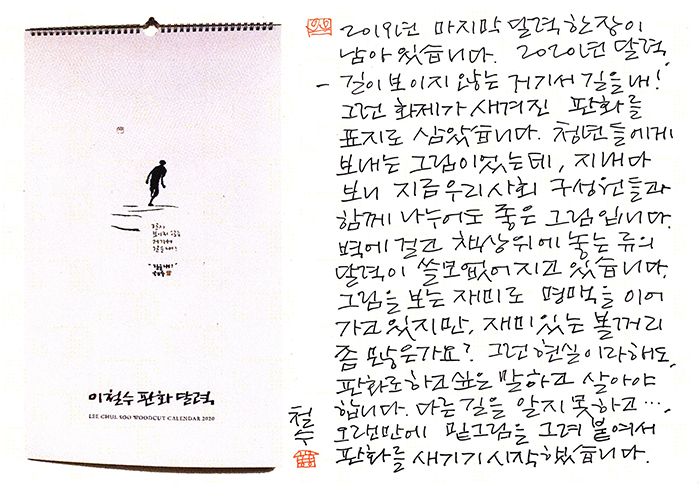 길이
보이지 않는
거기서
길을 내!
이철수 판화 달력
LEE CHUL SOO WOODCUT CALENDAR 2020
2019년 마지막 달력 한 장이
남아 있습니다. 2020년 달력
- 길이 보이지 않는 거기서 길을 내!
그런 화제가 새겨진 판화를
표지로 삼았습니다. 청년들에게
보내는 그림이었는데, 지내다
보니 지금 우리 사회 구성원들과
함께 나누어도 좋은 그림입니다.
벽에 걸고 책상 위에 놓는 류의
달력이 쓸모없어지고 있습니다.
그림을 보는 재미로 명맥을 이어
가고 있지만, 재미있는 볼꺼리
좀 많은가요? 그런 현실이라해도,
판화로 하고 싶은 말하고 살아야
합니다. 다른 길을 알지 못하고…
오랜만에 밑그림을 그려 붙여서
판화를 새기기 시작했습니다.
철수